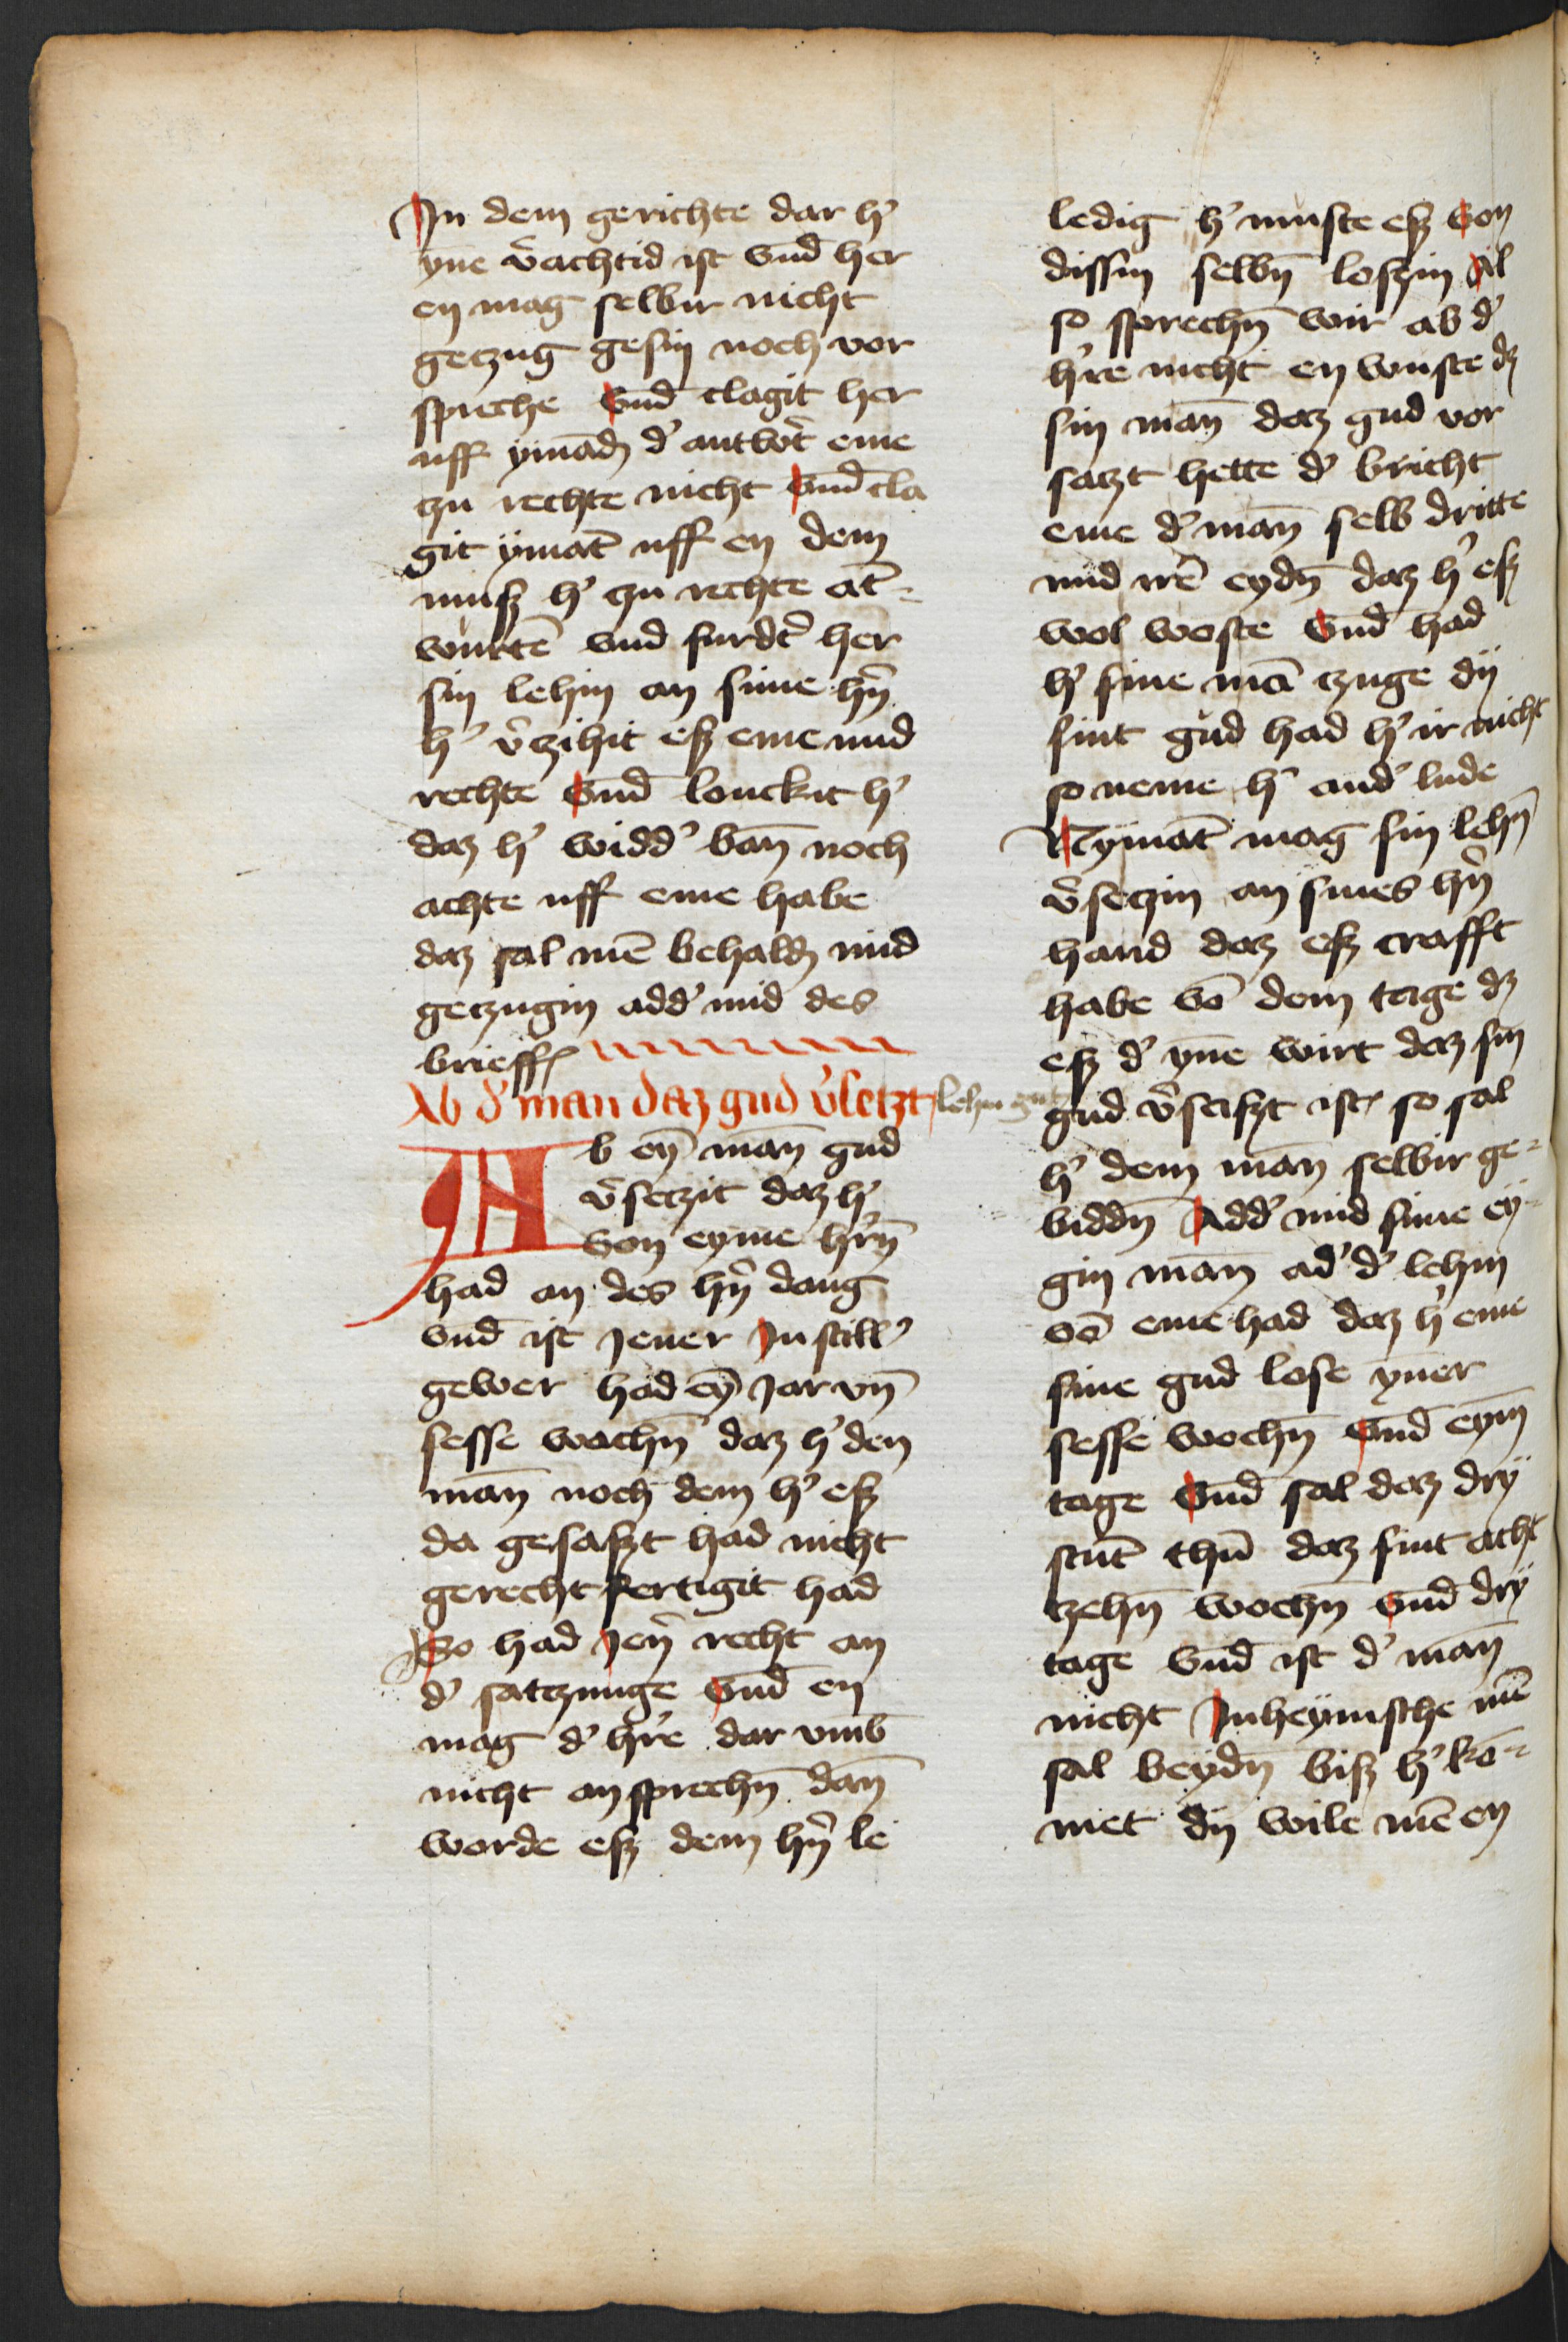 Jn dem gerichte dar h'
yn̄e v̾achtid ist vnd̄ her
en mag selbir nicht
getzug gesin noch vor
spreche vnd̄ clagit her
uff ymād̄ d' antw̾t eme
tzu rechte nicht vnd̄ cla
git ÿmāt uff en dem
musz h' tzu rechte āt-
wurtē vnd furdt̾ her
sin lehin an sime hr̄n
h' v̾tzihit esz eme mid
rechte vnd̄ louckit h'
daz h' widd' ban̄ noch
achte uff eme habe
daz sal mē behald̄ mid
getzugin add' mid des
brieff
Ab d' man daz gud v̾setzt lehn gut
Ab eyn̄ man̄ gud
v̾setzit daz h'
von eyme hr̄n
had an des hr̄n dang
vnd̄ ist Jener Jn still'
gewer had eyn̄ Jar vn̄
sesse wochn̄ daz h' den
man̄ noch dem h' esz
da gesaszt had nicht
gerecht fertigit had
So had Jen̾ recht an
d' satzunge vnd̄ en
mag d' h're dar vmb̄
nicht an sprechn̄ dan̄
worde esz dem hr̄n le
ledig h' muste esz von
dissin selbn̄ loszin Al
so sprechn̄ wir ab d'
h're nicht en wuste dz
sin man̄ daz gud vor
satzt hette d' bricht
eme d' man̄ selb dritte
mid irē eydn̄ daz h' esz
wol woste vnd̄ had
h' sine mā tzuge dÿ
sint gud had h' ir nicht
so neme h' and' lude
Nymāt mag sin lehn̄
v̾setzin an sines hr̄n
hand daz esz crafft
habe vō dem tage dz
esz d' yn̄e wirt daz sin
gud v̾saszt ist so sal
h' dem man̄ selbir ge-
biddn̄ Add' mid sime ey-
gin man̄ ad' d' lehin
vō eme had daz h' eme
sine gud lose yn̄er
sesse wochn̄ vnd̄ eym̄
tage vnd̄ sal daz drÿ
stūt thū daz sint acht
tzehn̄ wochn̄ vnd̄ drÿ
tage vnd̄ ist d' man̄
nicht Jnheymische mē
sal beydn̄ bisz h' kō-
met dÿ wile mē en